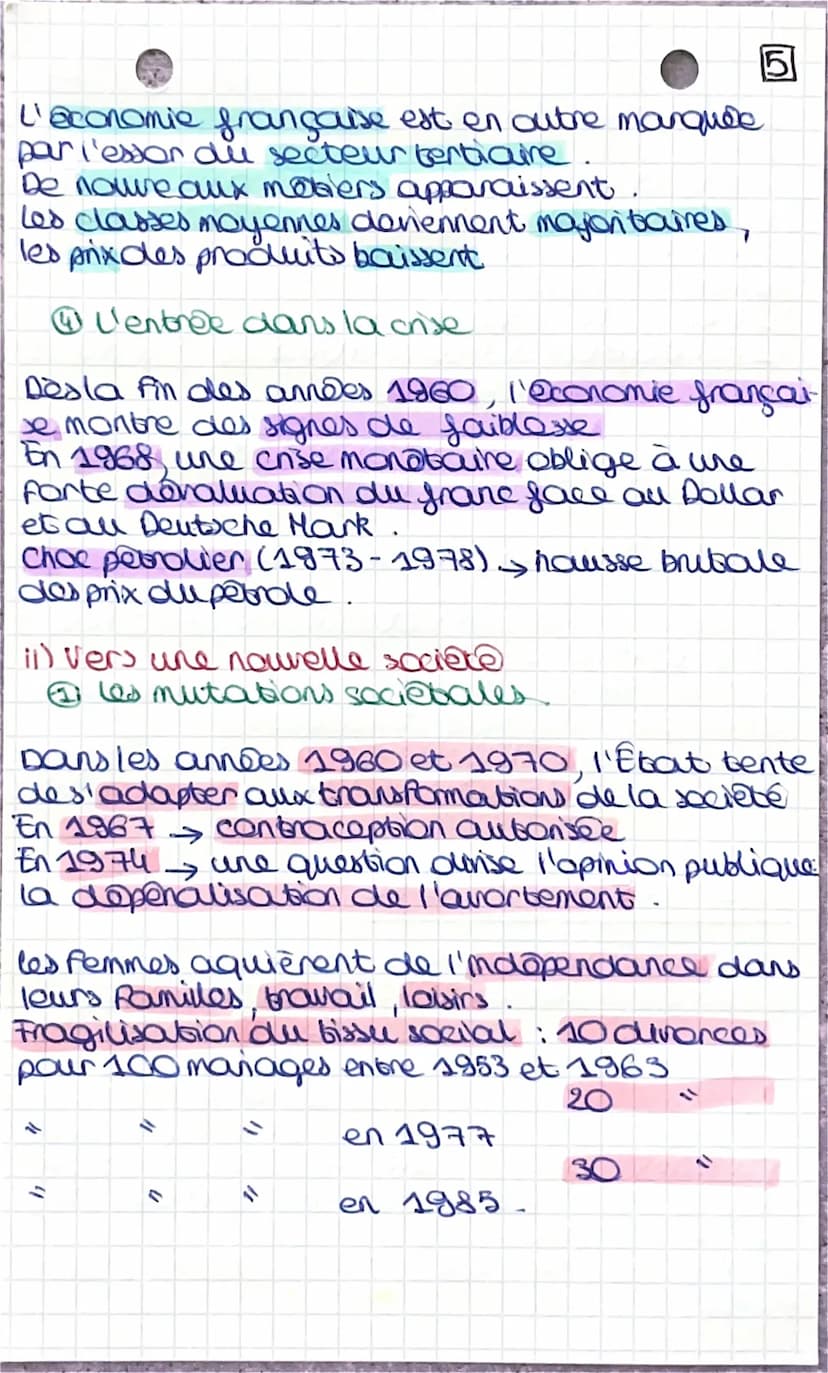 5
L'économie française est en outre marquée
par l'essor du secteur tertiaire.
De nouveaux métiers apparaissent.
Les classes moyennes deviennent majoritaires,
les prix des produits baissent
④ L'entrée dans la crise
Dès la fin des années 1960, l'économie françai-
se montre des signes de faiblesse
En 1968, une crise monétaire oblige à une
forte dévaluation du franc face au Dollar
et au Deutsche Mark.
Choc pétrolier (1973-1978) → hausse brutale
des prix du pétrole.
ii) Vers une nouvelle société
① Les mutations sociétales.
Dans les années 1960 et 1970, l'État tente
de s'adapter aux transformations de la société
En 1967 → contraception autorisée
En 1974 → une question divise l'opinion publique:
la dépénalisation de l'avortement.
Les femmes aquièrent de l'indépendance dans
leurs familles, travail, loisirs.
Fragilisation du tissu social : 10 divorces
pour 100 mariages entre 1953 et 1963
20 "
" " " en 1977
30 "
" " " en 1985.